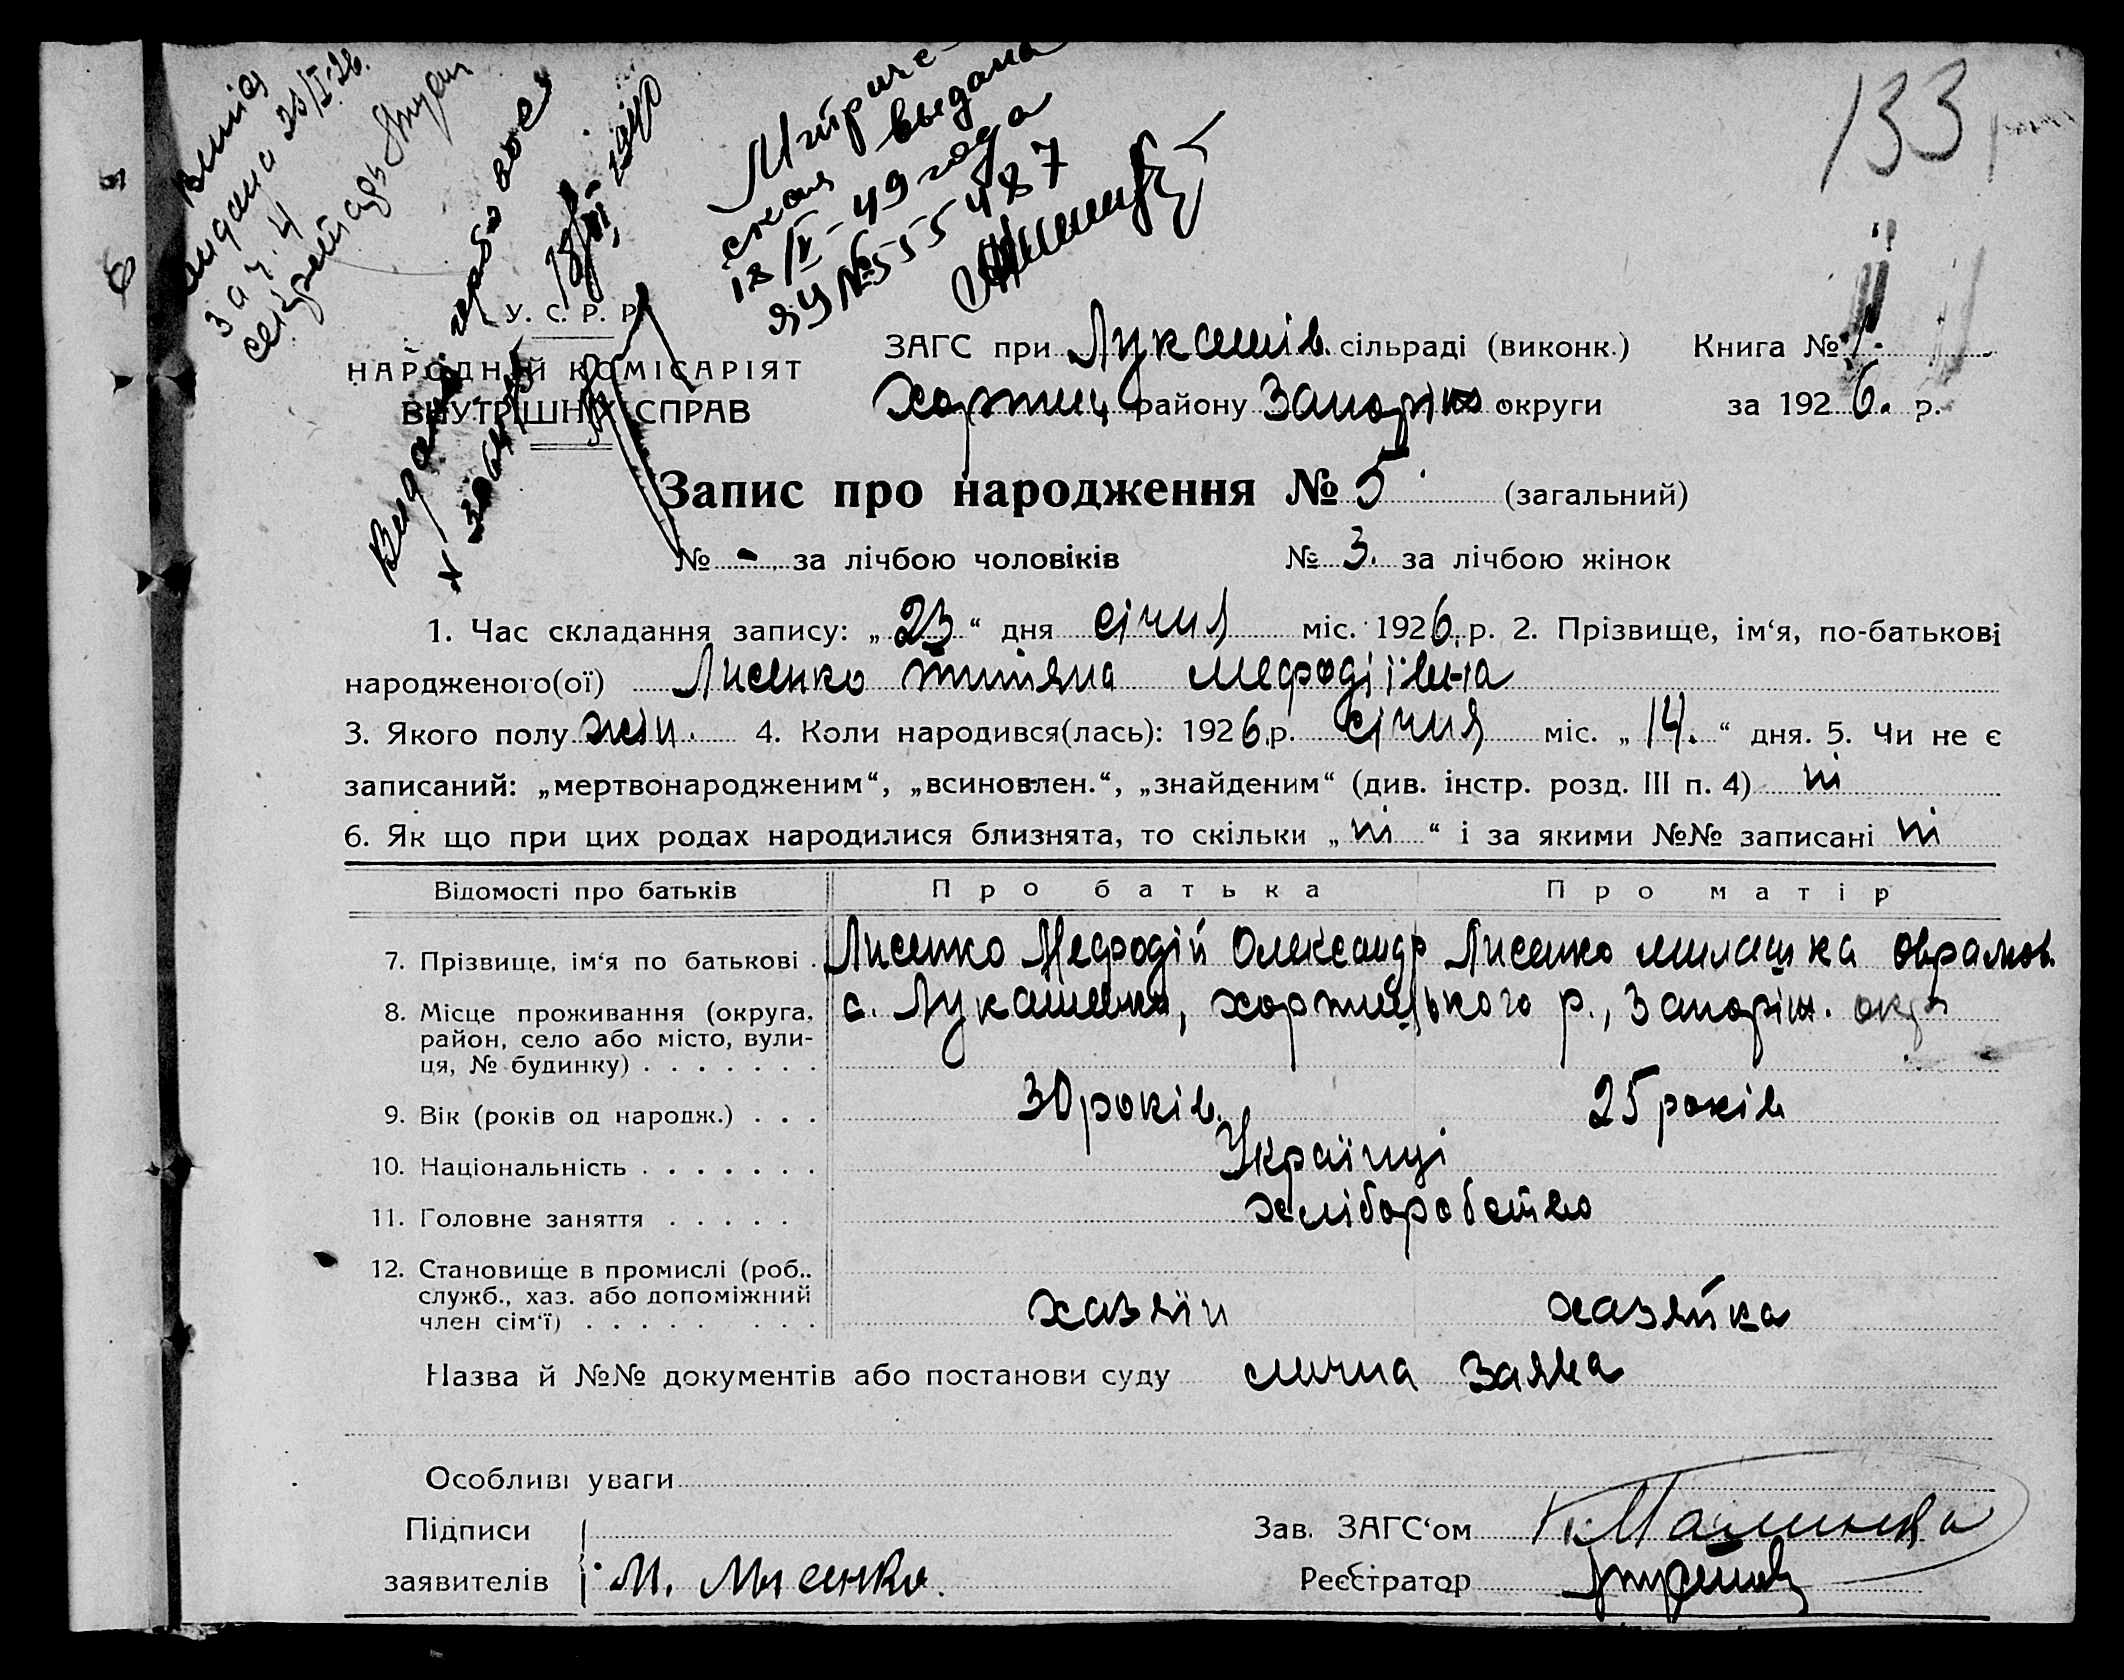 133
Випис
видана 23/I.26.
за ч. 4
Метриче-
ская выдана
18/V-49 года
ЯЦ № 555487
У. С. Р. Р.
НАРОДНІЙ КОМІСАРІЯТ
ВНУТРІШНІХ СПРАВ
ЗАГС при Лукашів. сільраді (виконк.) Книга № 1.
Хортиц району Запоріж округи за 1926. р.
Запис про народження № 5 (загальний)
№ - за лічбою чоловіків № 3. за лічбою жінок
1. Час складання запису: „23“ дня січня міс. 1926 р. 2. Прізвище, ім‘я, по-батькові
народженого(ої) Лисенко Титяна Мефодіївна
3. Якого полу жін. 4. Коли народився(лась): 1926 р. січня міс. „14.“ дня. 5. Чи не є
записаний: „мертвонародженим“, „всиновлен.“, „знайденим“ (див. інстр. розд. III п. 4) ні
6. Як що при цих родах народилися близнята, то скільки „ні“ і за якими №№ записані ні
Відомості про батьків Про батька Про матір
7. Прізвище, ім‘я по батькові . Лисенко Мефодій Олександр Лисенко Милашка Оврамов.
8. Місце проживання (округа, с. Лукашево, Хортицького р., Запоріж. окр
район, село або місто, вули-
ця, № будинку) . . . . . . .
9. Вік (років од народж.) . . . 30 років. 25 років
10. Національність . . . . . . . Українці
11. Головне заняття . . . . . хліборобство
12. Становище в промислі (роб..
служб., хаз. або допоміжний
член сім‘ї) . . . . . . . . хазяїн хазяйка
Назва й №№ документів або постанови суду лична заява
Особливі уваги
Підписи Зав. ЗАГС‘ом
заявителів М. Лысенко. Реєстратор